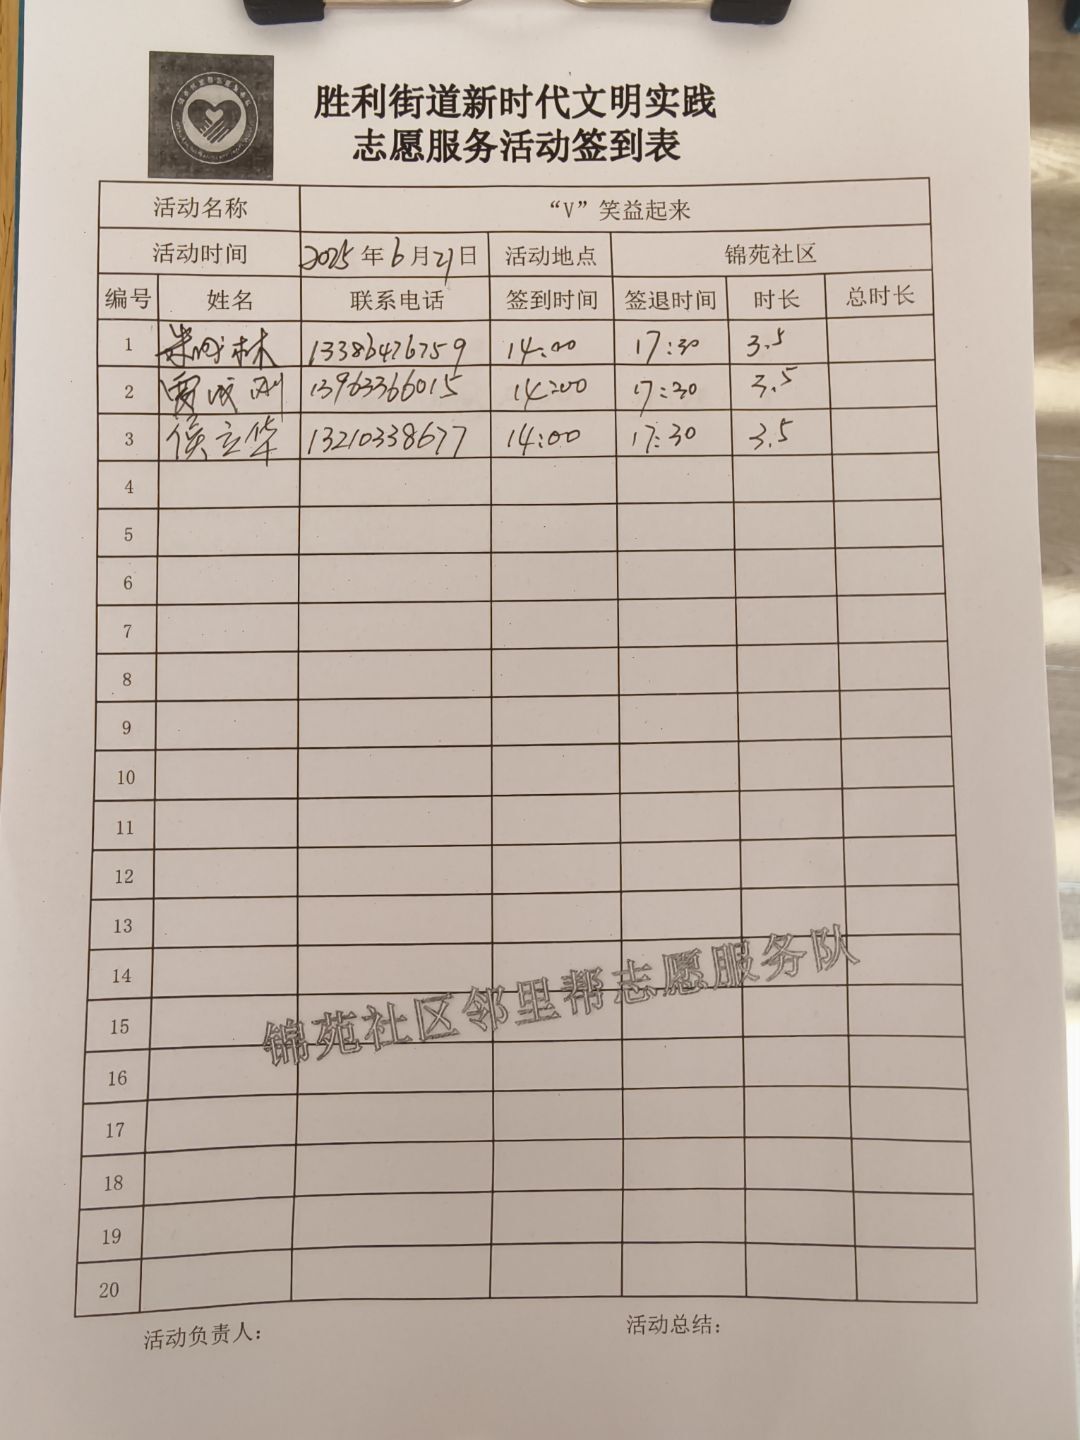 胜利街道新时代文明实践
志愿服务活动签到表
活动名称 “V”笑益起来
活动时间 2025年6月21日 活动地点 锦苑社区
编号 姓名 联系电话 签到时间 签退时间 时长 总时长
1 林 13386476759 14:00 17:30 3.5
2 贾成刚 13963366015 14:00 17:30 3.5
3 侯立华 13210338677 14:00 17:30 3.5
4
5
6
7
8
9
10
11
12
13
14
15
16
17
18
19
20
锦苑社区邻里帮志愿服务队
活动负责人: 活动总结: